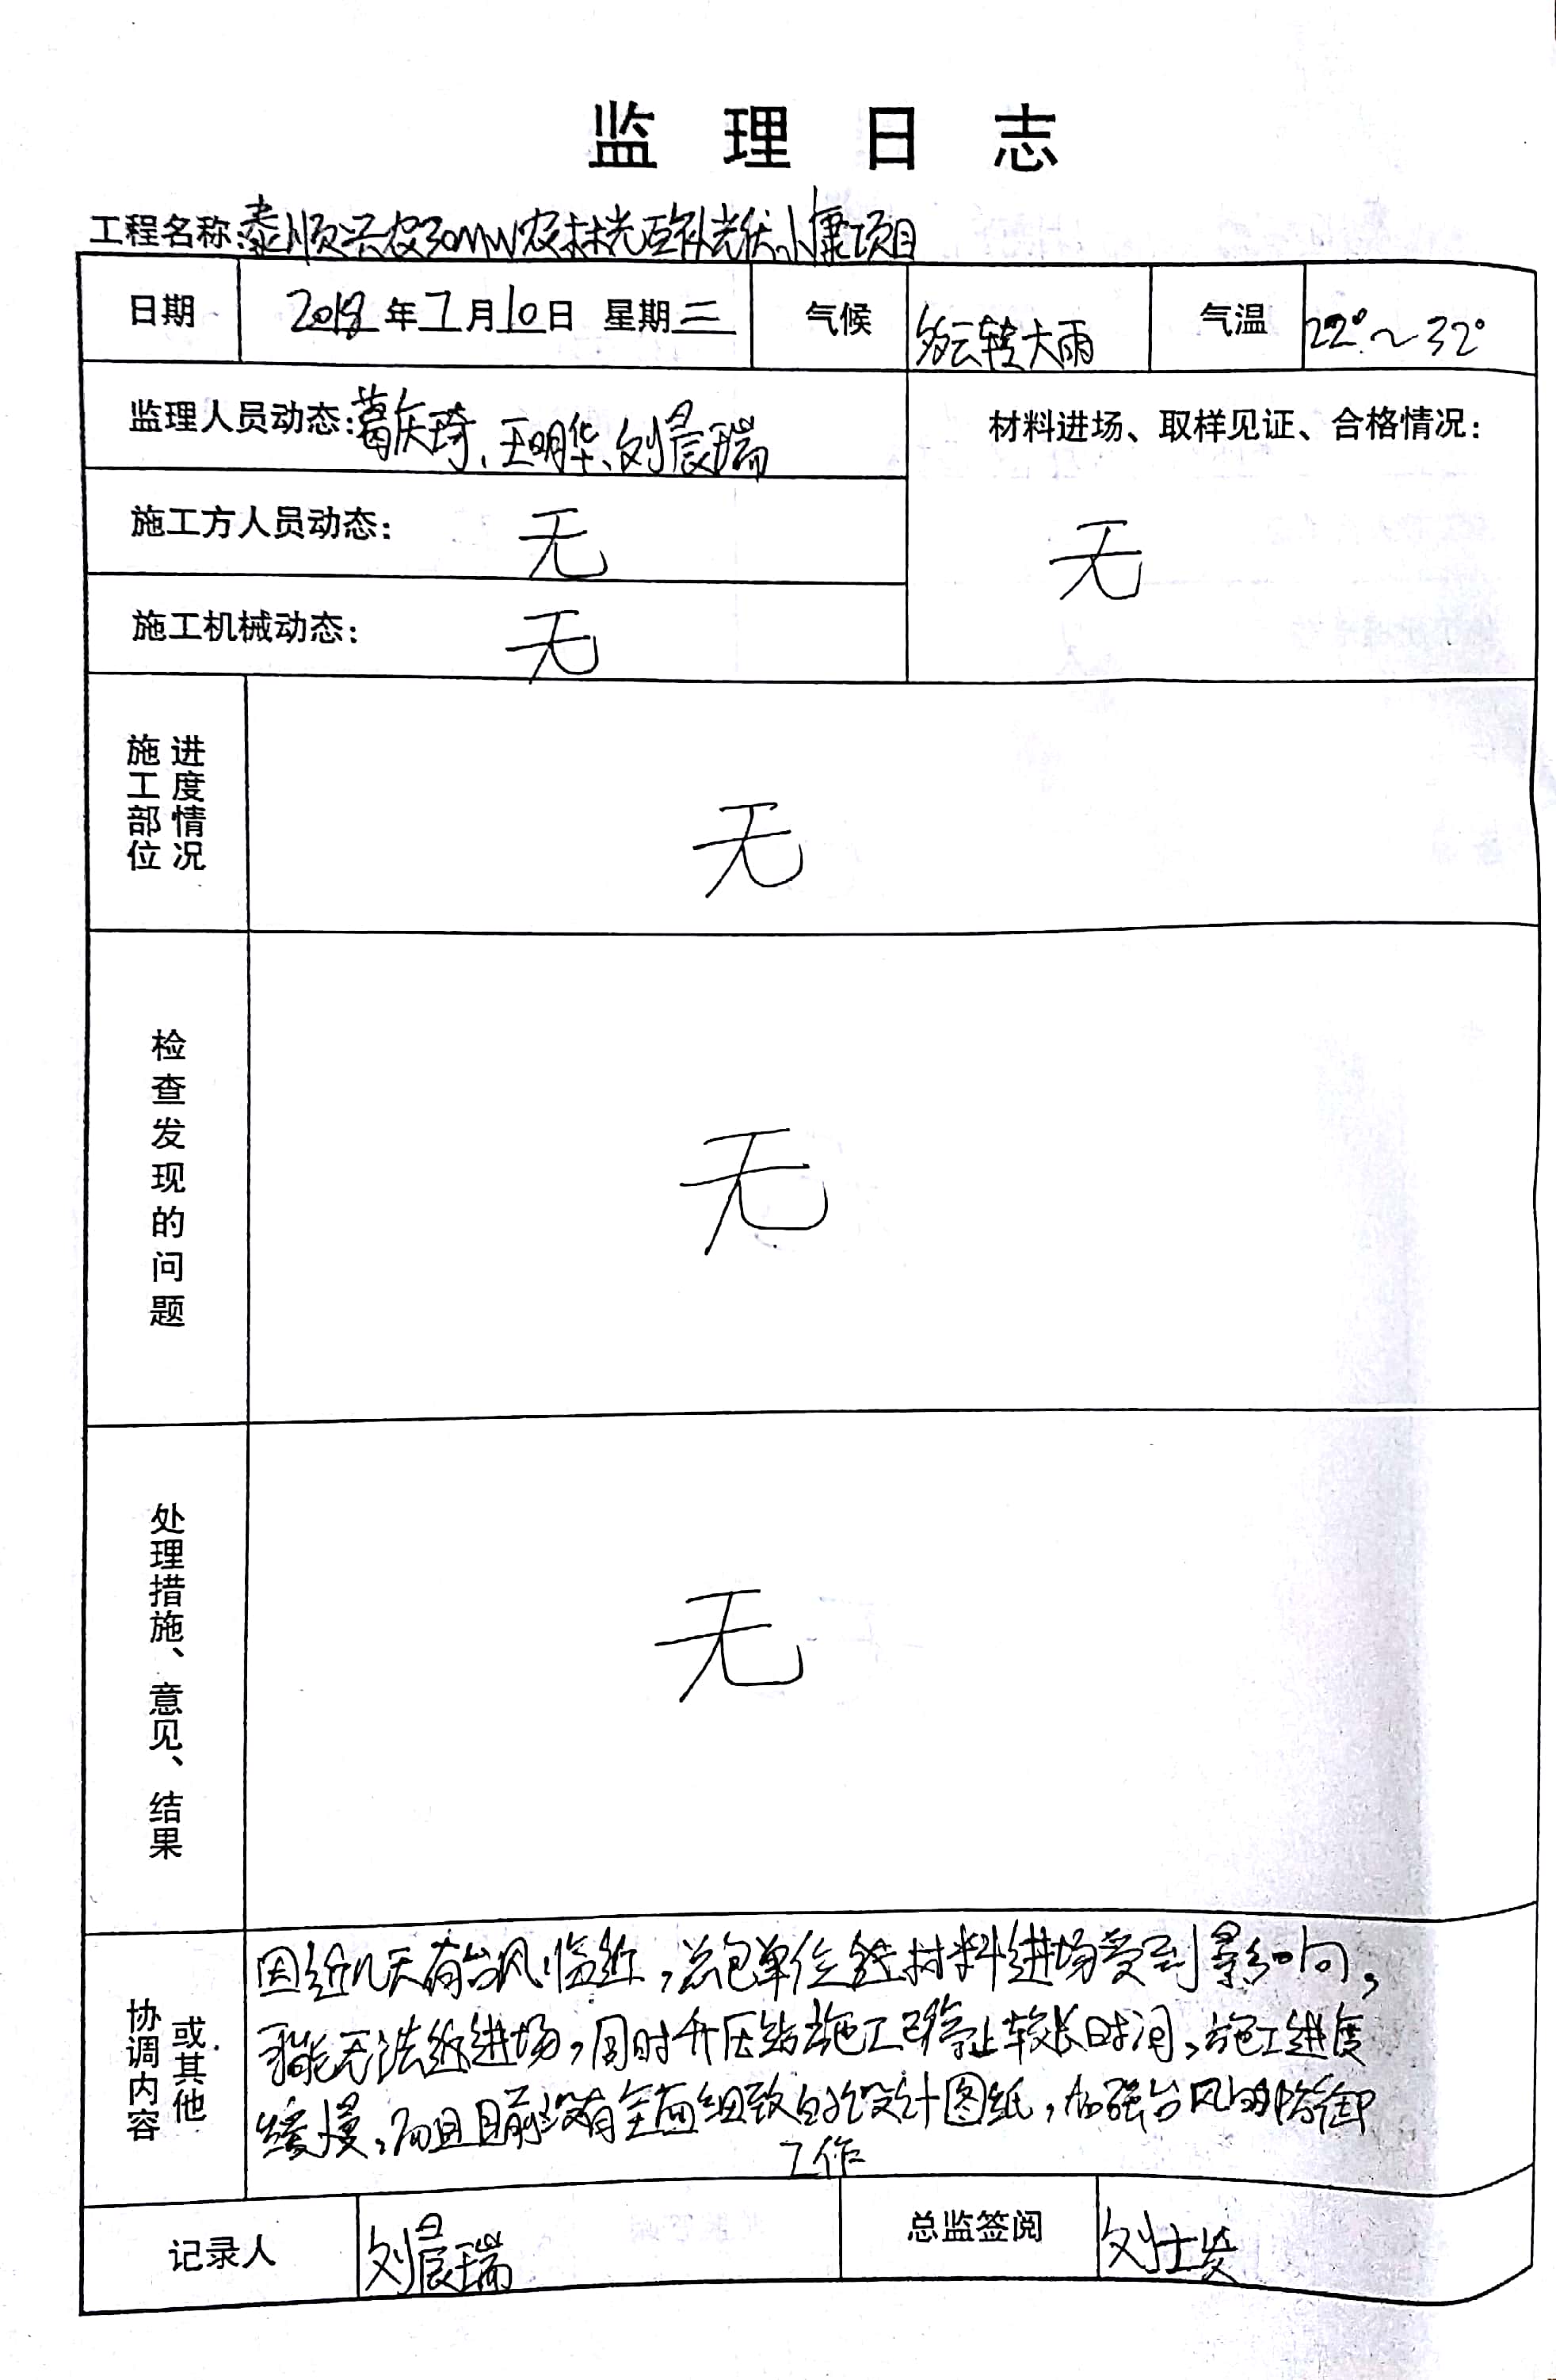 监理日志
工程名称:泰顺兴农30MW农林光互补光伏小康项目
日期 2018年7月10日 星期二 气候 多云转大雨 气温 22°~32°
监理人员动态:葛庆琦、王明华、刘晨瑞
材料进场、取样见证、合格情况:
无
施工方人员动态: 无
施工机械动态: 无
施工部位
进度情况
无
检查发现的问题
无
处理措施、意见、结果
无
协调内容
或其他
因近几天有台风临近,总包单位 材料进场受到影响,
可能无法 进场,同时升压站施工已停止较长时间,施工进度
缓慢,而且目前没有全面细致的设计图纸,加强台风的防御
工作
记录人 刘晨瑞 总监签阅 刘士